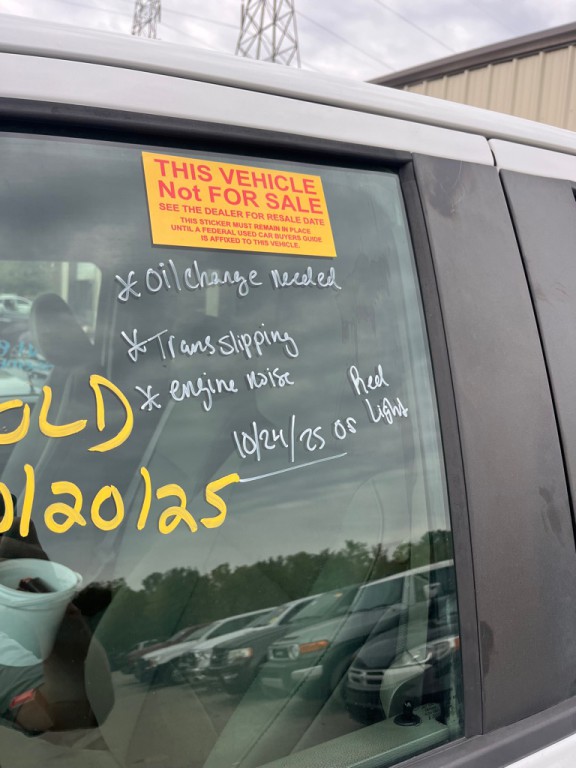 THIS VEHICLE
Not FOR SALE
SEE THE DEALER FOR RESALE DATE
THIS STICKER MUST REMAIN IN PLACE
UNTIL A FEDERAL USED CAR BUYERS GUIDE
IS AFFIXED TO THIS VEHICLE.
* Oil change needed
* Trans slipping
* engine noise
Red
Light
10/24/25 OS
OLD
0/20/25